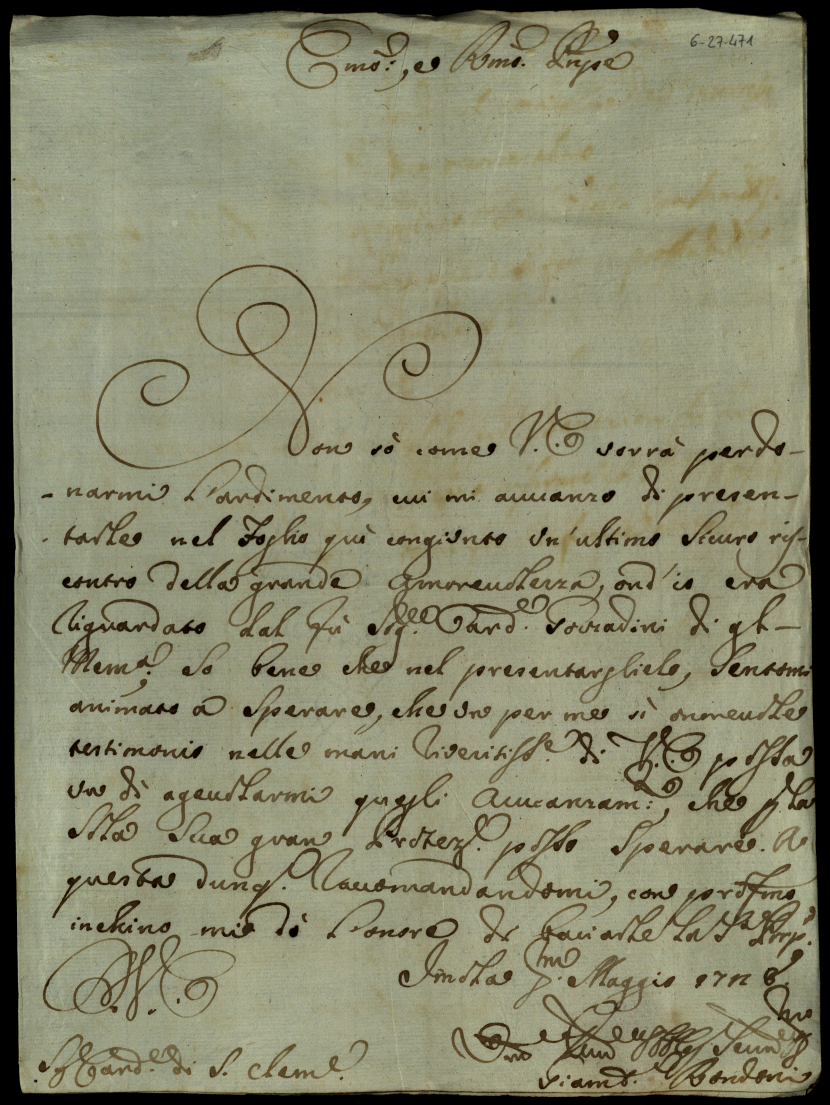 6-27-471
Emo:, e Rmo. Pnpe
Non sò come V. E. vorrà perdo-
-narmi l'ardimento, cui mi auuanzo di presen-
-tarle nel Foglio quì congiunto un'ultimo sicuro ris-
contro della grande amoreuolezza, ond'io era
riguardato dal fù Sigre Card.e Corradini di gl-
Mem.a So bene che nel presentarglielo, sentomi
animato a sperare, che un per me sì onoreuole
testimonio nelle mani riueritisse di V. E. possa
un dì ageuolarmi quegli auuanzam:, che p la
sola sua gran Protez.e posso sperare. A
questa dunq.e raccomandandomi, con profmo
inchino mi dò l'onore di baciarle la Porp.
Imola Maggio
V. E.
Sig Card.e di S. Clem.e
Umo Seru
Biondini